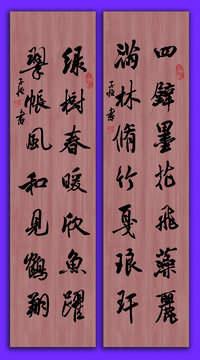 四壁墨花飛藻麗
滿林脩竹戛琅玕
綠樹春暖欣魚躍
翠帳風和見鶴翔